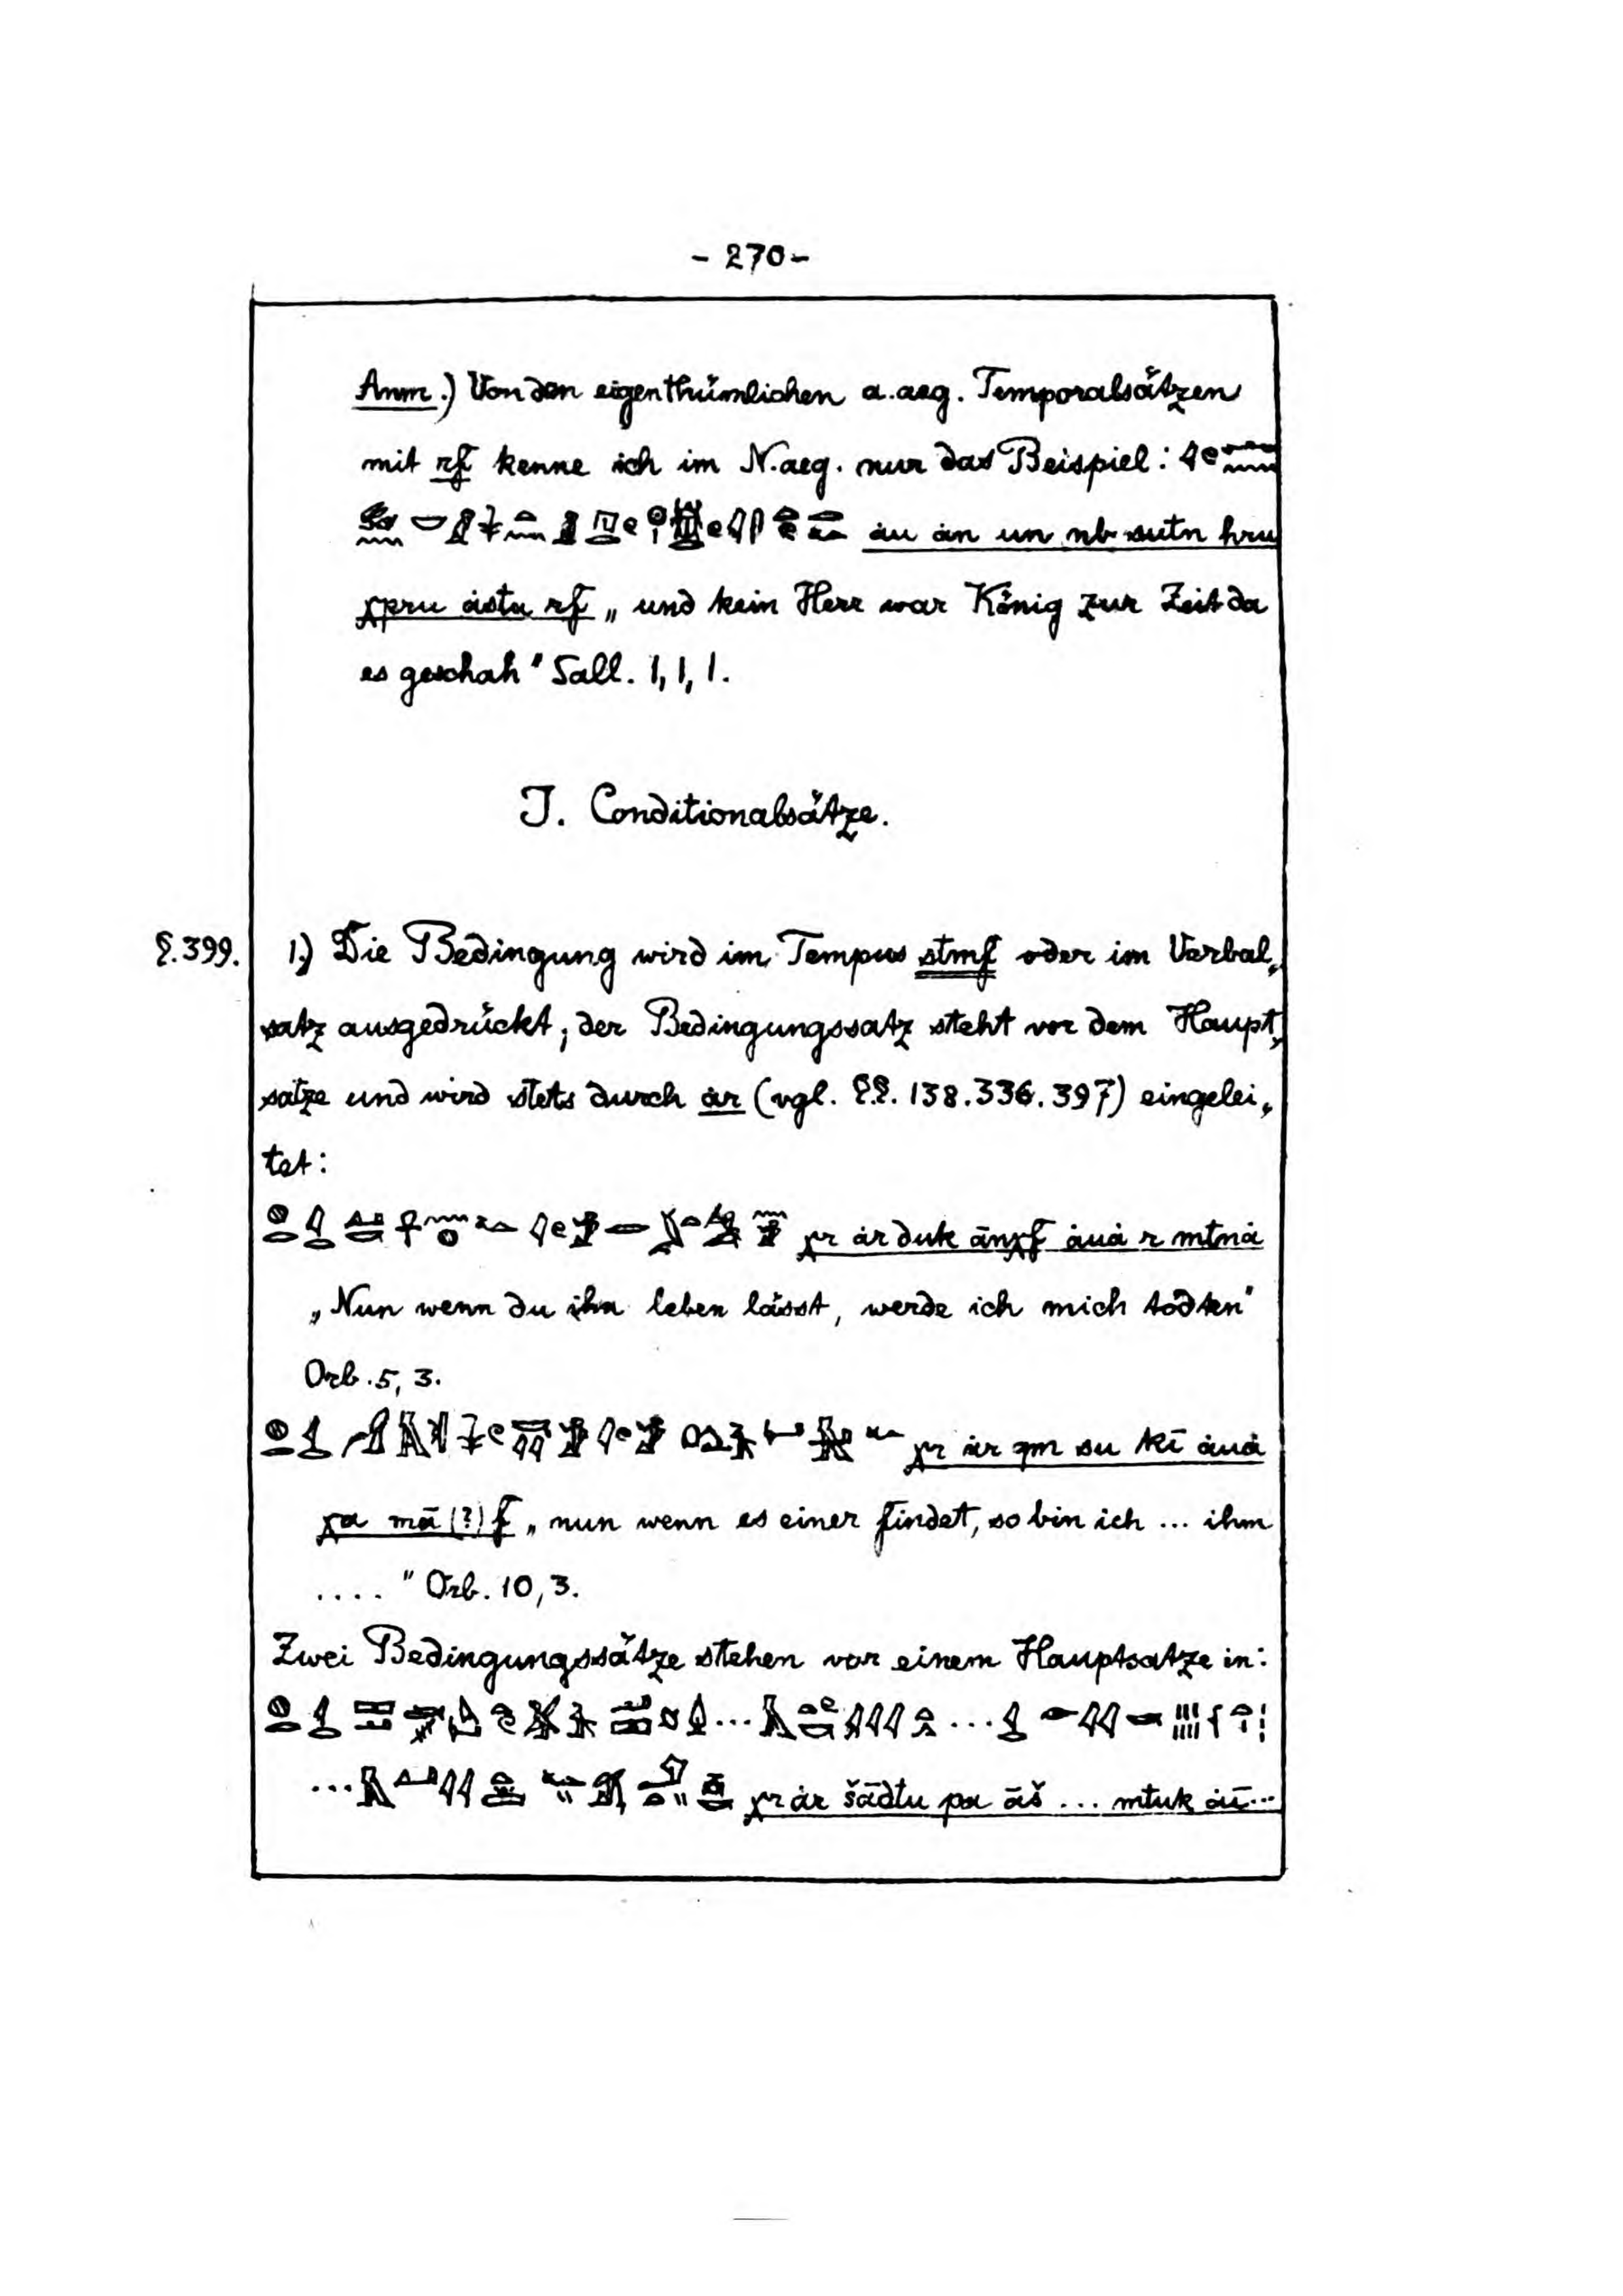 - 270 -
Anm.) Von den eigenthümlichen a.aeg. Temporalsätzen
mit rf kenne ich im N.aeg. nur das Beispiel:
ȧu ȧn un nb sutn hru
χpru ȧstu rf „und kein Herr war König zur Zeit da
es geschah" Sall. 1, 1, 1.
J. Conditionalsätze.
§. 399. 1.) Die Bedingung wird im Tempus stmf oder im Verbal„
satz ausgedrückt; der Bedingungssatz steht vor dem Haupt„
satze und wird stets durch ȧr (vgl. §§. 138. 336. 397) eingelei„
tet:
χr ȧr duk ānχf ȧuȧ r mtnȧ
„Nun wenn du ihn leben lässt, werde ich mich tödten"
Orb. 5, 3.
χr ȧr qm su kī ȧuȧ
χa mā (?) f „nun wenn es einer findet, so bin ich ... ihm
...." Orb. 10, 3.
Zwei Bedingungssätze stehen vor einem Hauptsatze in:
... ...
... χr ȧr šādtu pa āš ... mtuk ȧī ...